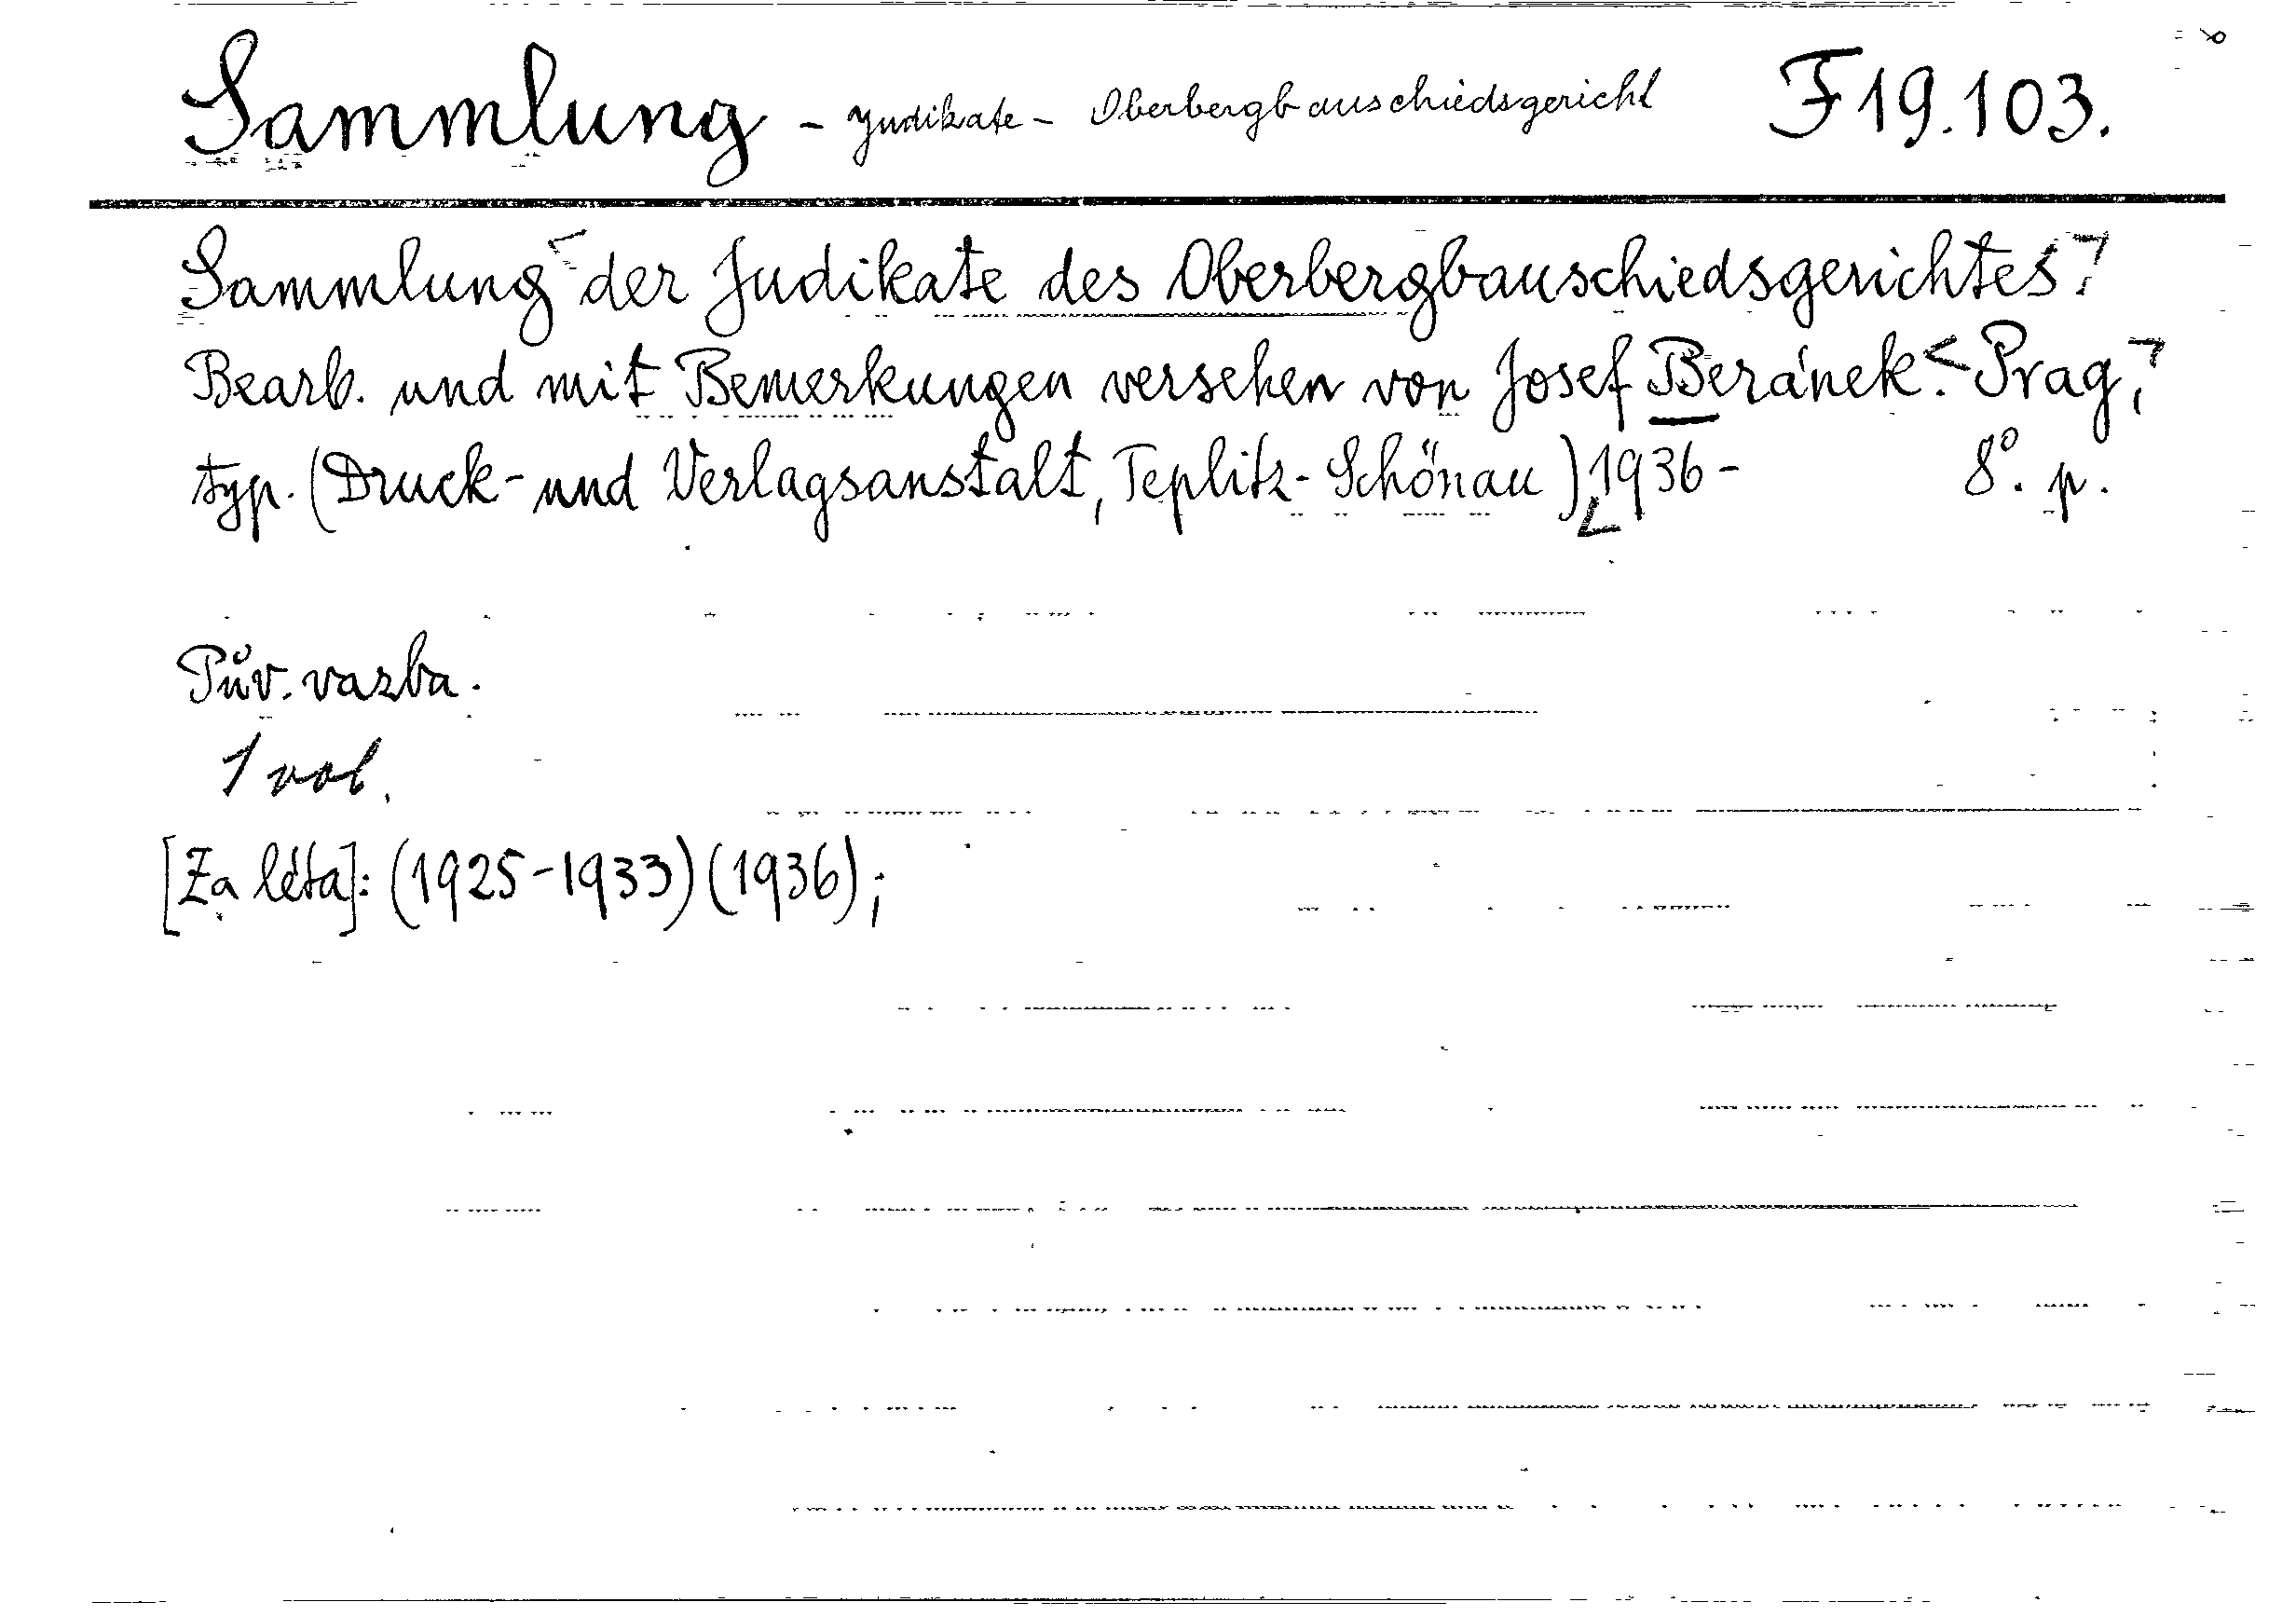 Sammlung - Judikate - Oberbergbauschiedsgericht F 19.103.
Sammlung der Judikate des Oberbergbauschiedsgerichtes.
Bearb. und mit Bemerkungen versehen von Josef Beránek. Prag,
typ. (Druck- und Verlagsanstalt, Teplitz-Schönau) 1936- 8°. p.
Pův. vazba.
1 vol.
[Za léta]: (1925-1933) (1936);